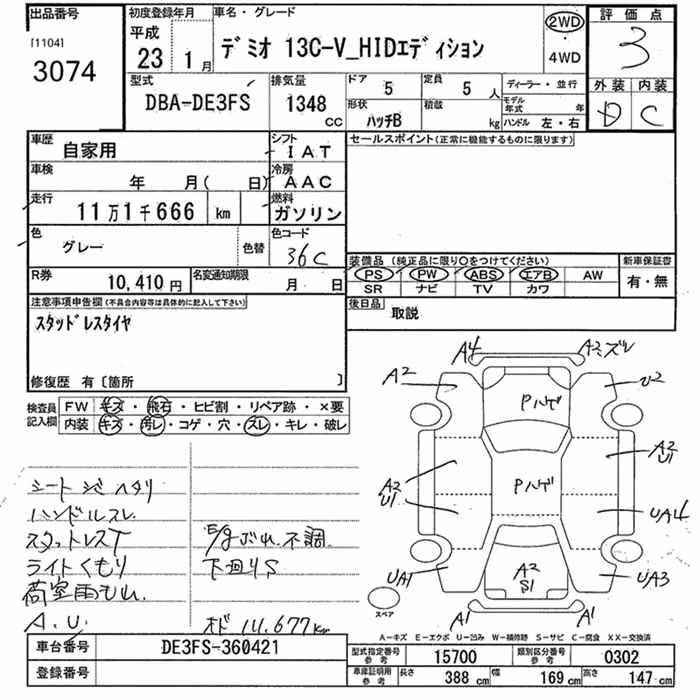 出品番号
[1104]
3074
初度登録年月
平成
23 1 月
車名・グレード
デミオ 13C-V_HIDエディション
2WD
・
4WD
評価点
3
型式
DBA-DE3FS
排気量
1348
CC
ドア
5
定員
5 人
形状
ハッチB
積載
kg
ディーラー・並行
モデル年式 年
ハンドル 左・右
外装 内装
D C
車歴
自家用
シフト
IAT
車検
年 月( 日)
冷房
AAC
走行
11万1千666 km
燃料
ガソリン
色
グレー
色替
色コード
36C
R券
10,410円
名変通知期限
月 日
セールスポイント(正常に機能するものに限ります)
装備品 (純正品に限り○をつけてください)
新車保証書
PS PW ABS エアB AW
SR ナビ TV カワ
有・無
後日品
取説
注意事項申告欄(不具合内容等は具体的に記入して下さい)
スタッドレスタイヤ
修復歴 有〔箇所 〕
検査員記入欄
FW キズ・飛石・ヒビ割・リペア跡・×要
内装 キズ・汚レ・コゲ・穴・スレ・キレ・破レ
シートシミヘタリ
ハンドルスレ
スタットレスT
ライトくもり
荷室雨もれ.
A.U.
E/gぶれ.不調
下廻りS
オド 111,677km
A4
A2ミズレ
A2
U2
Pハゲ
A2
U1
A2
U1
Pハゲ
UA4
UA1
A2
S1
UA3
A1
A1
スペア
A-キズ E-エクボ U-凹み W-補修跡 S-サビ C-腐食 XX-交換済
車台番号
DE3FS-360421
登録番号
型式指定番号
参考
15700
類別区分番号
参考
0302
車庫証明用
参考
長さ 388 cm
幅 169 cm
高さ 147 cm